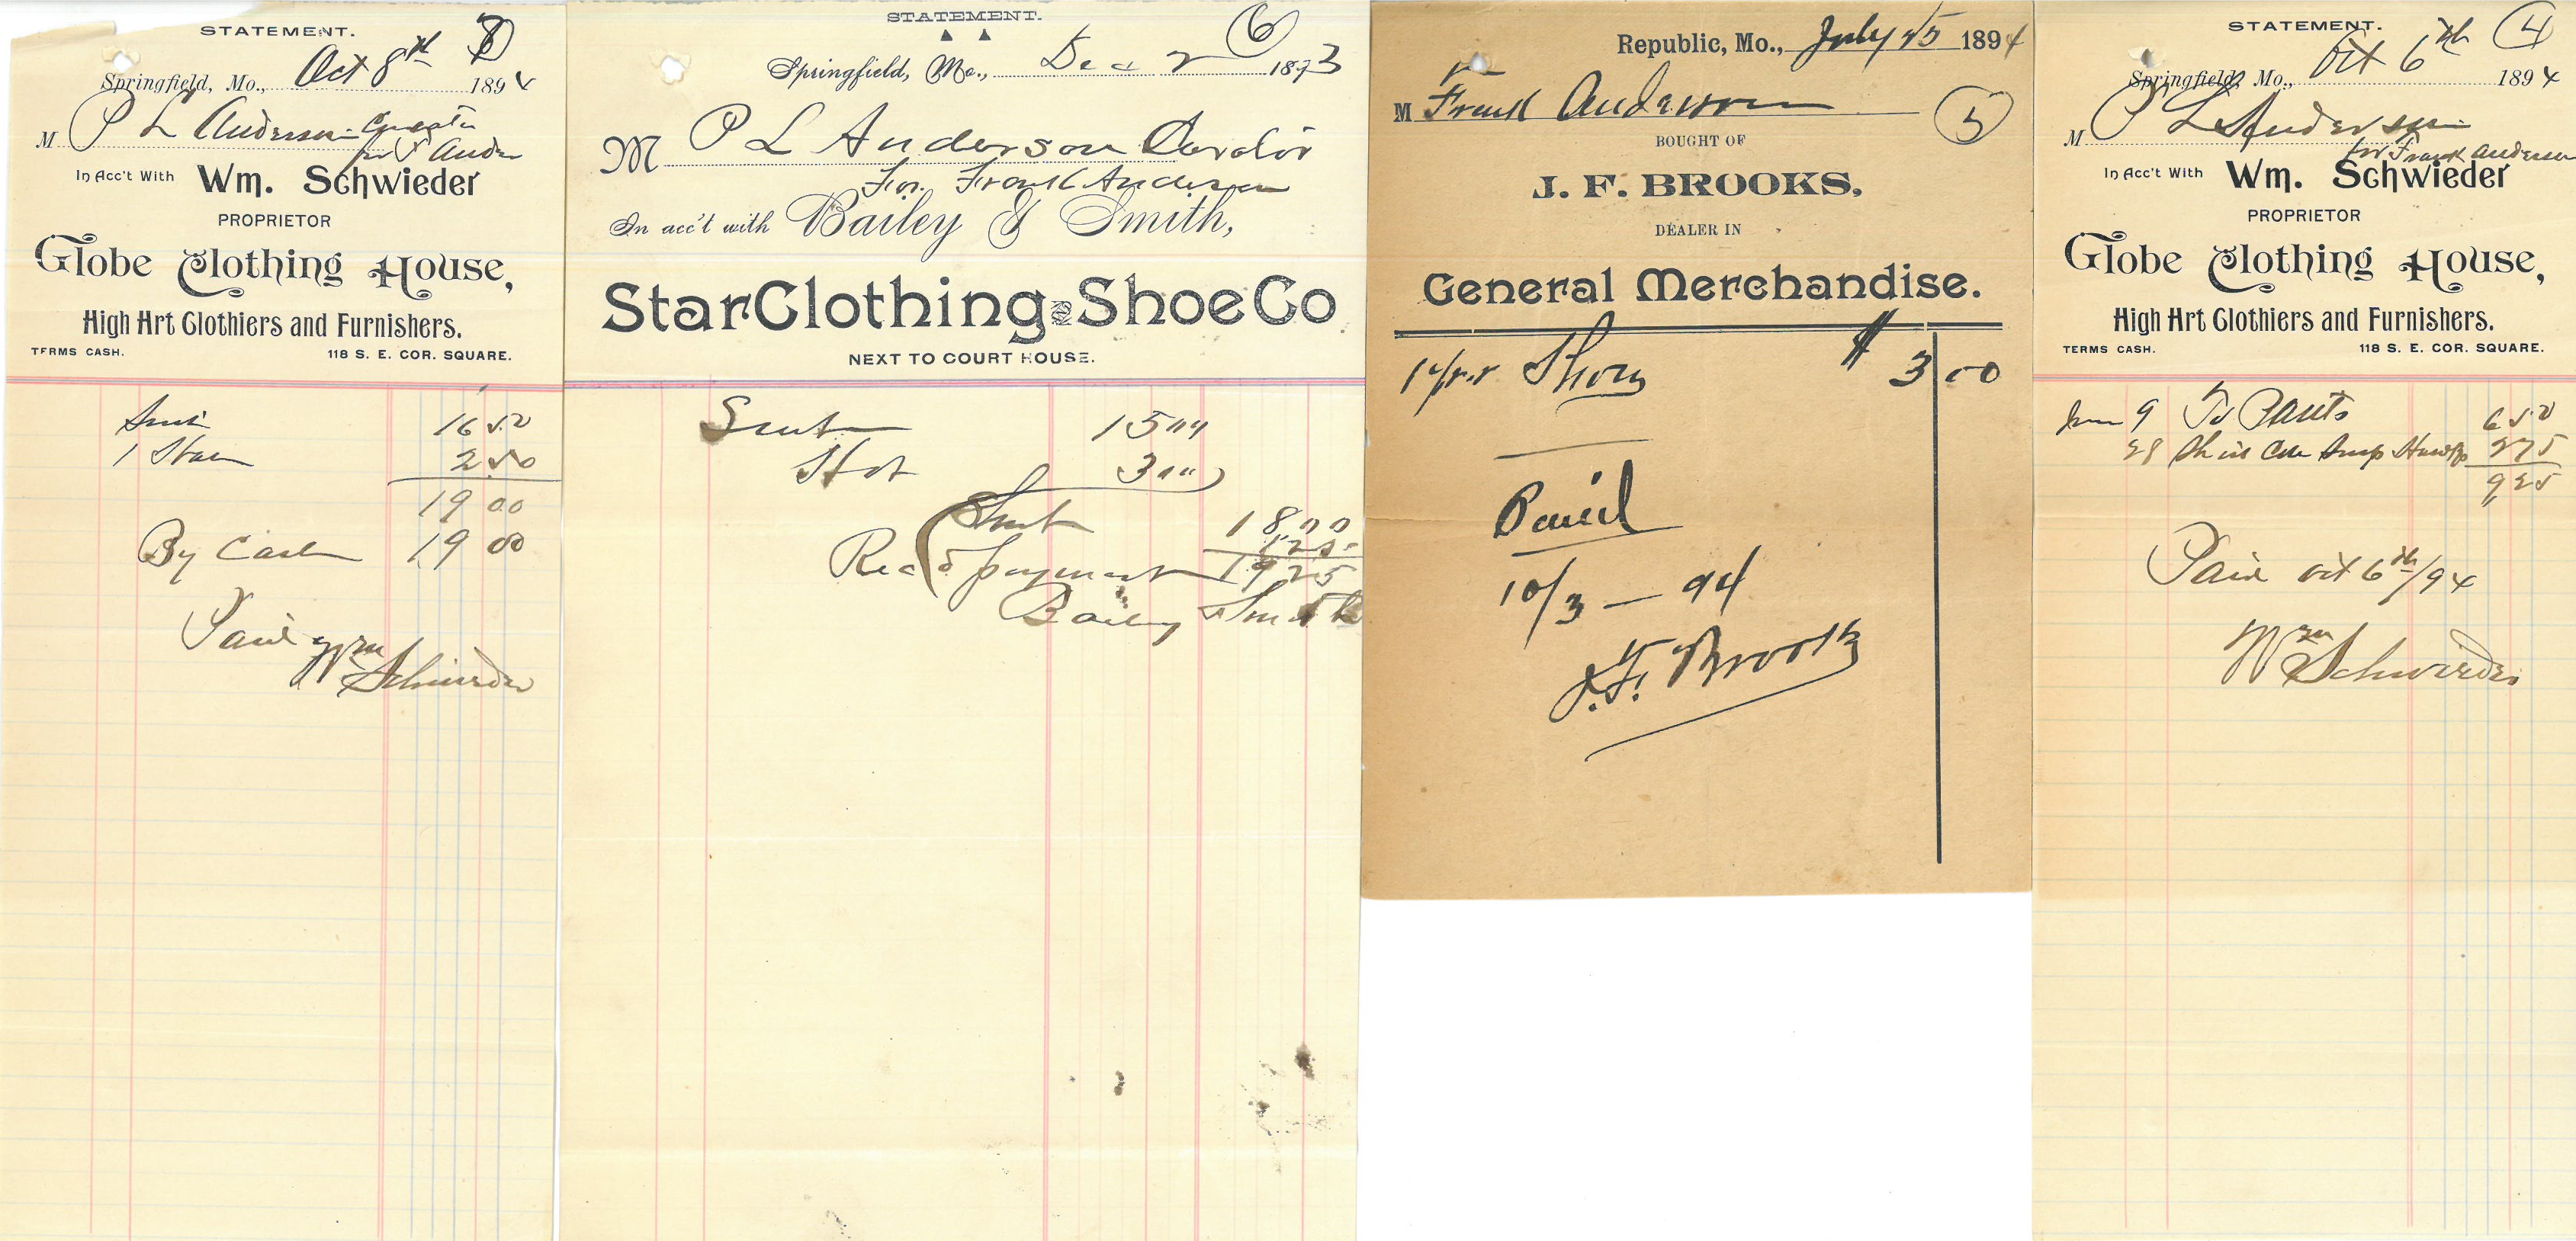 STATEMENT.
Springfield, Mo., Oct 8th 1894
M P L Anderson
for F Ander
In Acc't With Wm. Schwieder
PROPRIETOR
Globe Clothing House,
High Art Clothiers and Furnishers.
TERMS CASH. 118 S. E. COR. SQUARE.
Suit 16 50
1 2 50
19 00
By Cash 19 00
Paid Wm
Schwieder
STATEMENT.
6
Springfield, Mo., Dec 2 1893
M P L Anderson
For Frank Anderson
In acc't with Bailey & Smith,
Star Clothing and Shoe Co
NEXT TO COURT HOUSE.
Suit 15 00
Hat 3 00
18 00
1 25
Recd payment 19 25
Baily Smith
Republic, Mo., July 25 1894
M Frank Anderson
5
BOUGHT OF
J. F. BROOKS,
DEALER IN
General Merchandise.
1 pr Shoes $ 3 00
Paid
10/3 - 94
J. F. Brooks
STATEMENT.
4
Springfield, Mo., Oct 6th 1894
M P L Anderson
for Frank Anderson
In Acc't With Wm. Schwieder
PROPRIETOR
Globe Clothing House,
High Art Clothiers and Furnishers.
TERMS CASH. 118 S. E. COR. SQUARE.
9 To Pants 6 50
28 2 75
9 25
Paid Oct 6th/94
Wm Schwieder